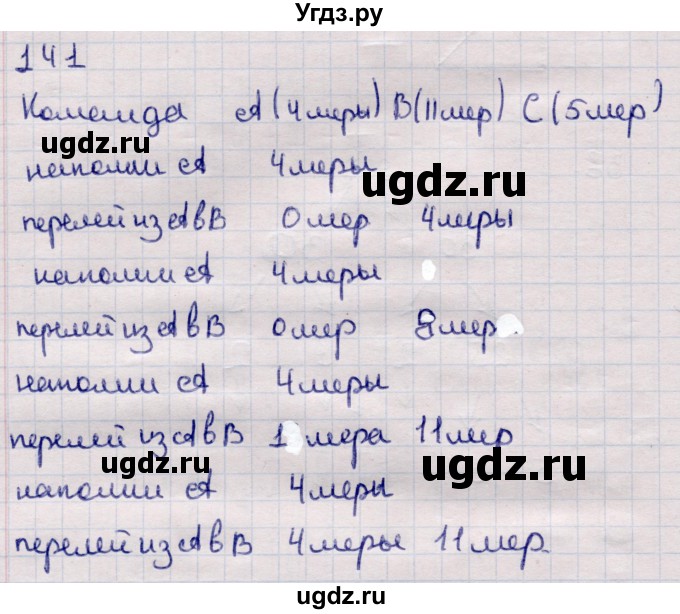 Угдз.ру
141
Команда А (4 меры) В (11 мер) С (5 мер)
ugdz.ru
наполни А 4 меры
ugdz.ru
перелей из А в В 0 мер 4 меры
наполни А 4 меры
перелей из А в В 0 мер 8 мер
наполни А 4 меры
перелей из А в В 1 мера 11 мер
ugdz.ru
ugdz.ru
наполни А 4 меры
перелей из А в В 4 меры 11 мер.
ugdz.ru